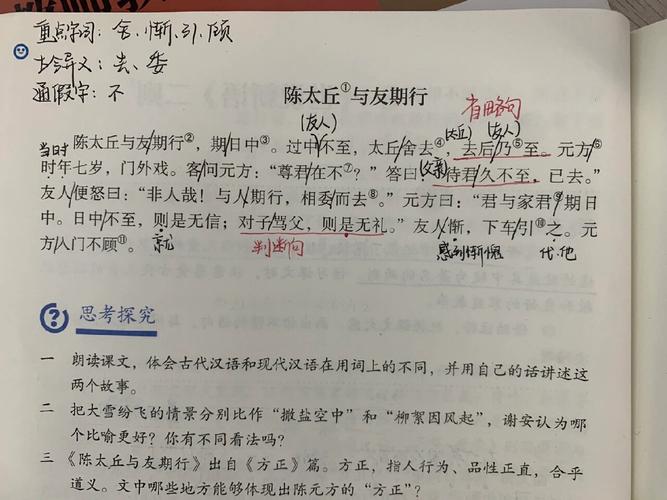 重点字词：舍、惭、引、顾
古今异义：去、委
通假字：不
陈太丘①与友期行
省略句
(友人)
(太丘) (友人)
陈太丘与友期行②，期日中③。过中不至，太丘舍去④，去后乃⑤至。元方⑥
当时
(父亲)
时年七岁，门外戏。客问元方：“尊君在不⑦？”答曰：“待君久不至，已去。”
友人便怒曰：“非人哉！与人期行，相委而去⑧。”元方曰：“君与家君⑨期日
中。日中不至，则是无信；对子骂父，则是无礼。”友人惭，下车引⑩之。元
方入门不顾⑪。
就
判断句
感到惭愧
代，他
思考探究
一 朗读课文，体会古代汉语和现代汉语在用词上的不同，并用自己的话讲述这
两个故事。
二 把大雪纷飞的情景分别比作“撒盐空中”和“柳絮因风起”，谢安认为哪
个比喻更好？你有不同看法吗？
三 《陈太丘与友期行》出自《方正》篇。方正，指人行为、品性正直，合乎
道义。文中哪些地方能够体现出陈元方的“方正”？